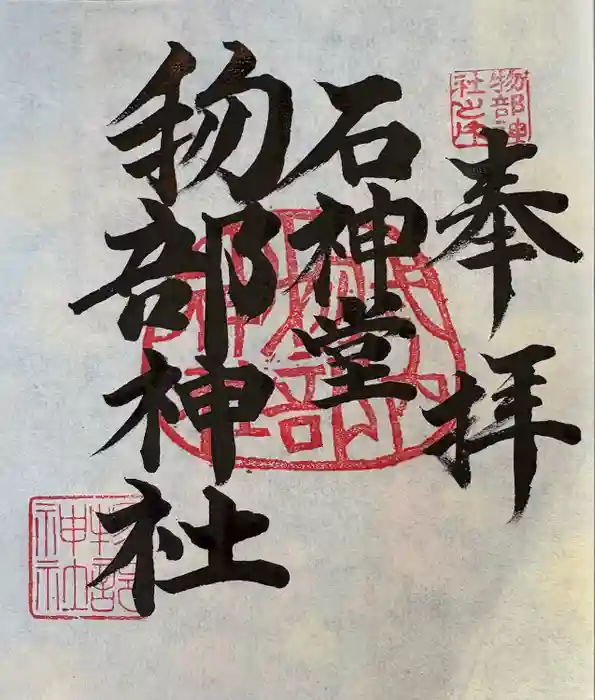 奉拝
石神堂
物部神社
物部神
社之印
物部
神社